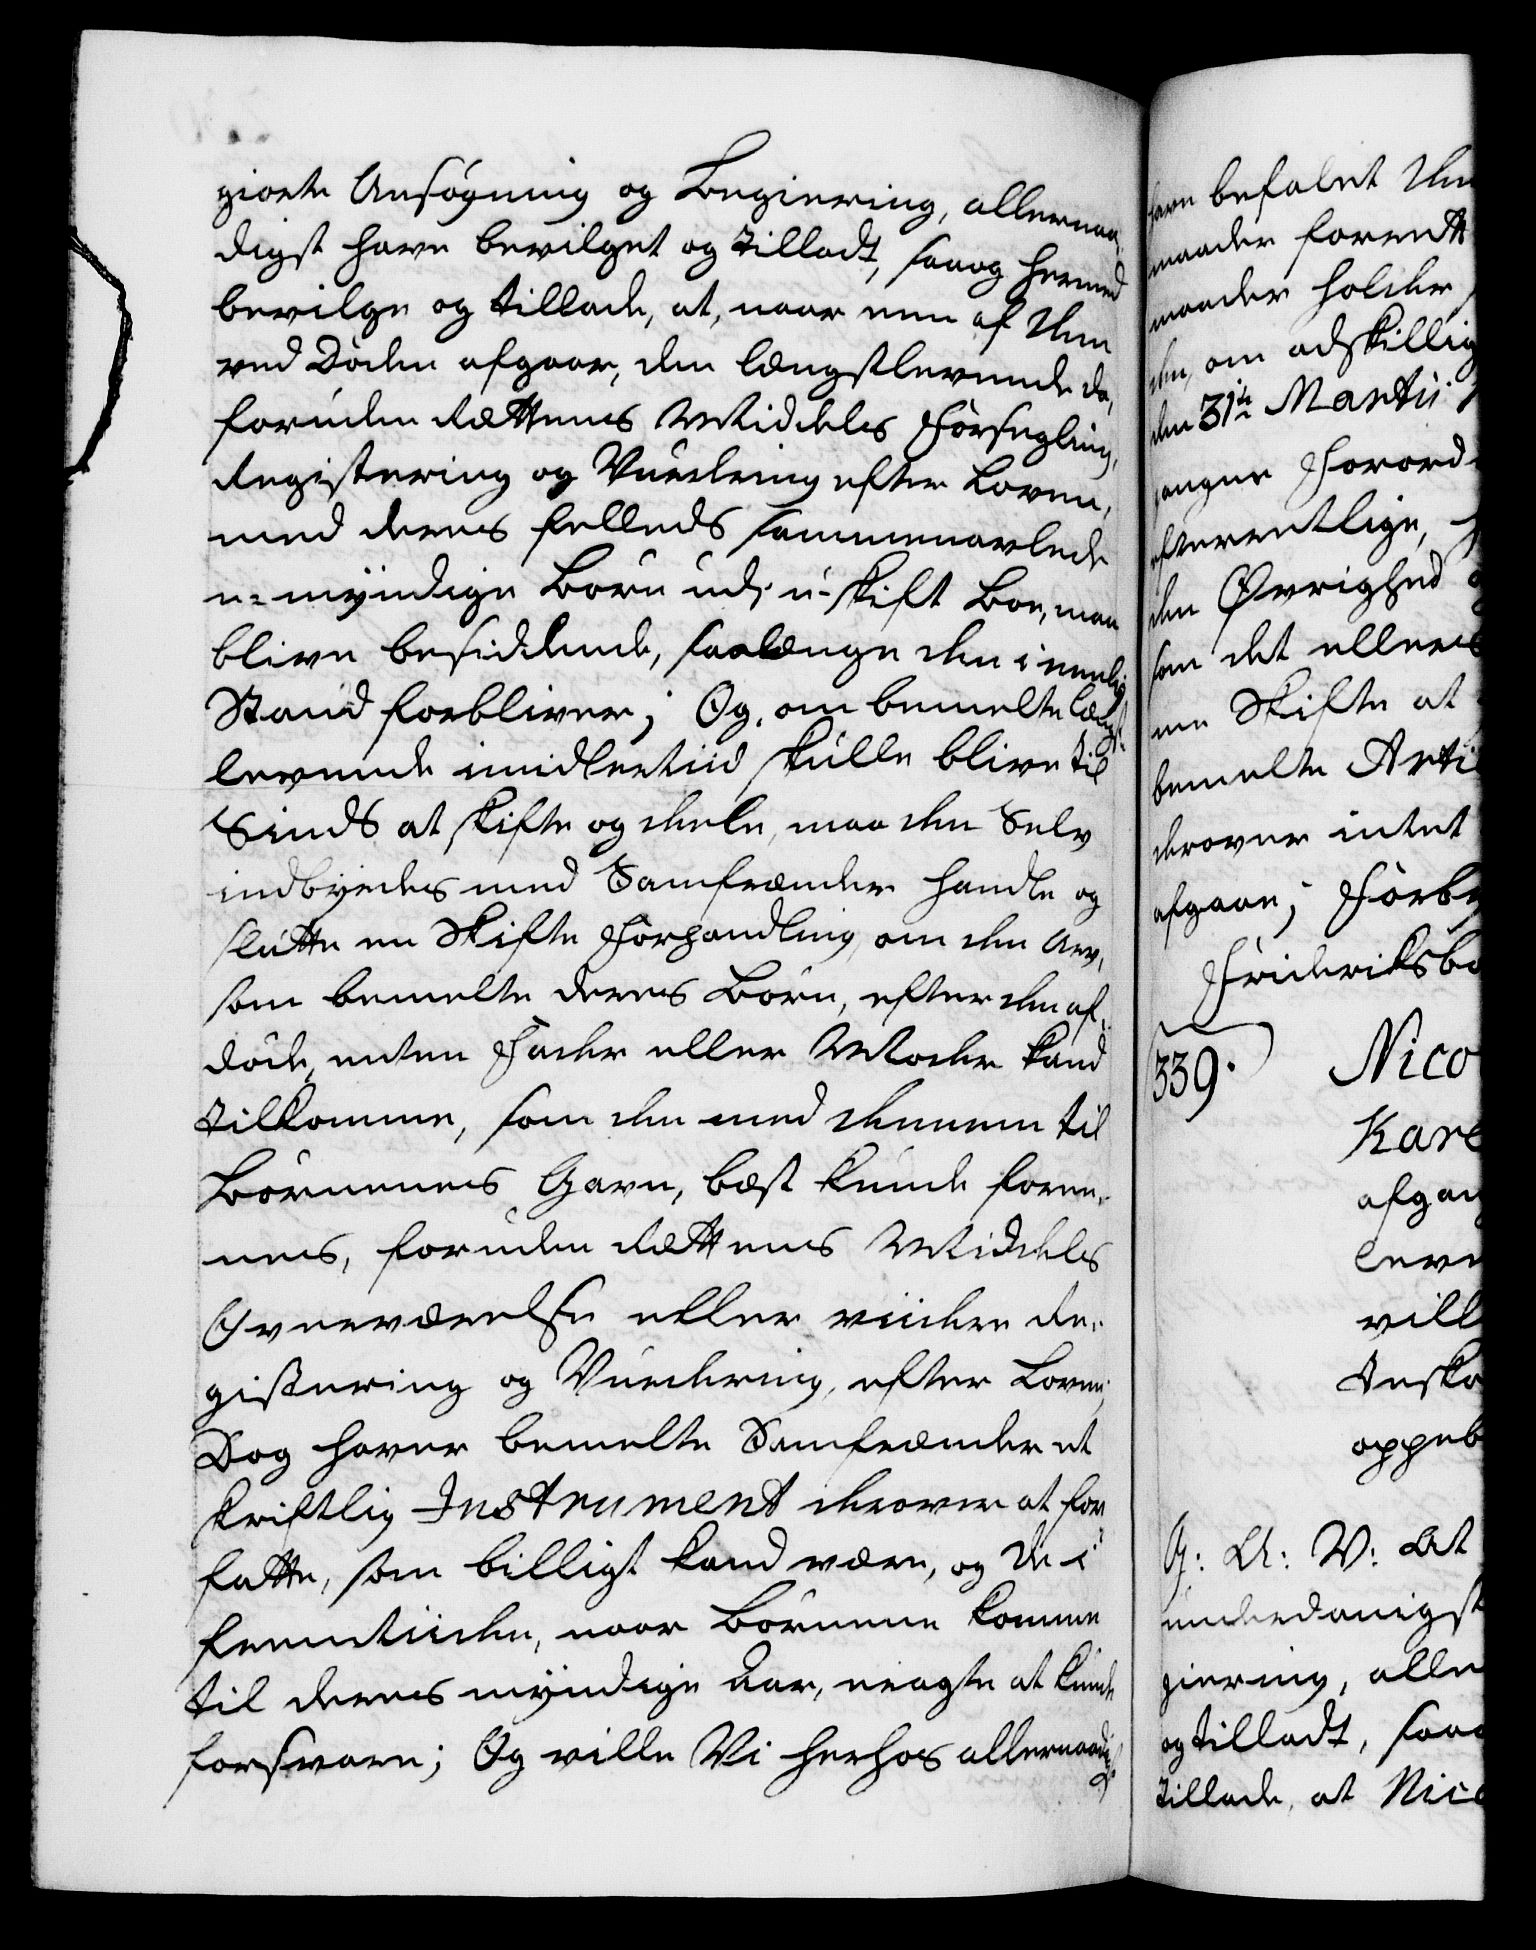 giorte Ansøgning og Begiering, allernaa-
digst have bevilget og tilladt, saaog hermed
bevilge og tillade, at, naar een af dem
ved Døden afgaar, den længstlevende da,
foruden Rættens Middels Forsegling,
Registering og Vurdering efter Loven,
med deres felleds sammenavlede
u-myndige Børn udi u-skift Boe, maa
blive besiddende, saalænge den i eenlig
Stand forbliver; Og, om bemelte længst-
levende imidlertiid skulle blive til
Sinds at skifte og deele, maa den Selv
indbyrdes med Samfrænder handle og
slutte en Skifte Forhandling, om den Arv,
som bemelte deres Børn, efter den af-
døde, enten Fader eller Moder kand
tilkomme, som den med dennem til
Børnenes Gavn, bæst kunde foree-
nes, foruden Rættens Middels
Overværelse eller viidere Re-
gistering og Vurdering, efter Loven;
Dog haver bemelte Samfrænder et
skriftlig Instrument derover at for-
fatte, som billigt kand være, og de i
fremtiiden, naar Børnene komme
til deres myndige Aar, agte at kunde
forsvare; Og ville Vi herhos allernaadigst
have befalet dem
maader forrett
maader holder
den, om adskillig
den 31te Martii
gangne Forord
efterrettlige,
den Øvrighed
som det ellers
ne Skifte at
bemelte Arti
derover intet
afgaae; Forby
Friderichsbe
339. Nico
Kare
afgan
leve
vill
Enske
oppeb
G: A: V: At
underdanigst
giering, alle
og tilladt, saa
tillade, at Nico